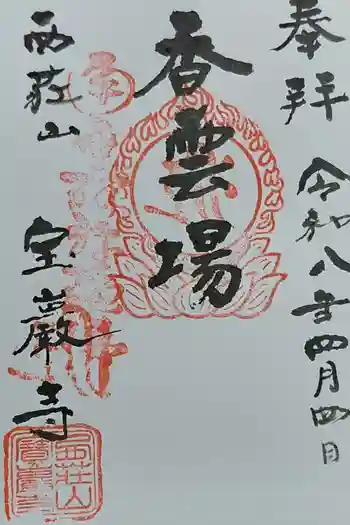 奉拝 令和八年四月四日
香雲場
西荘山 宝巌寺
西荘山